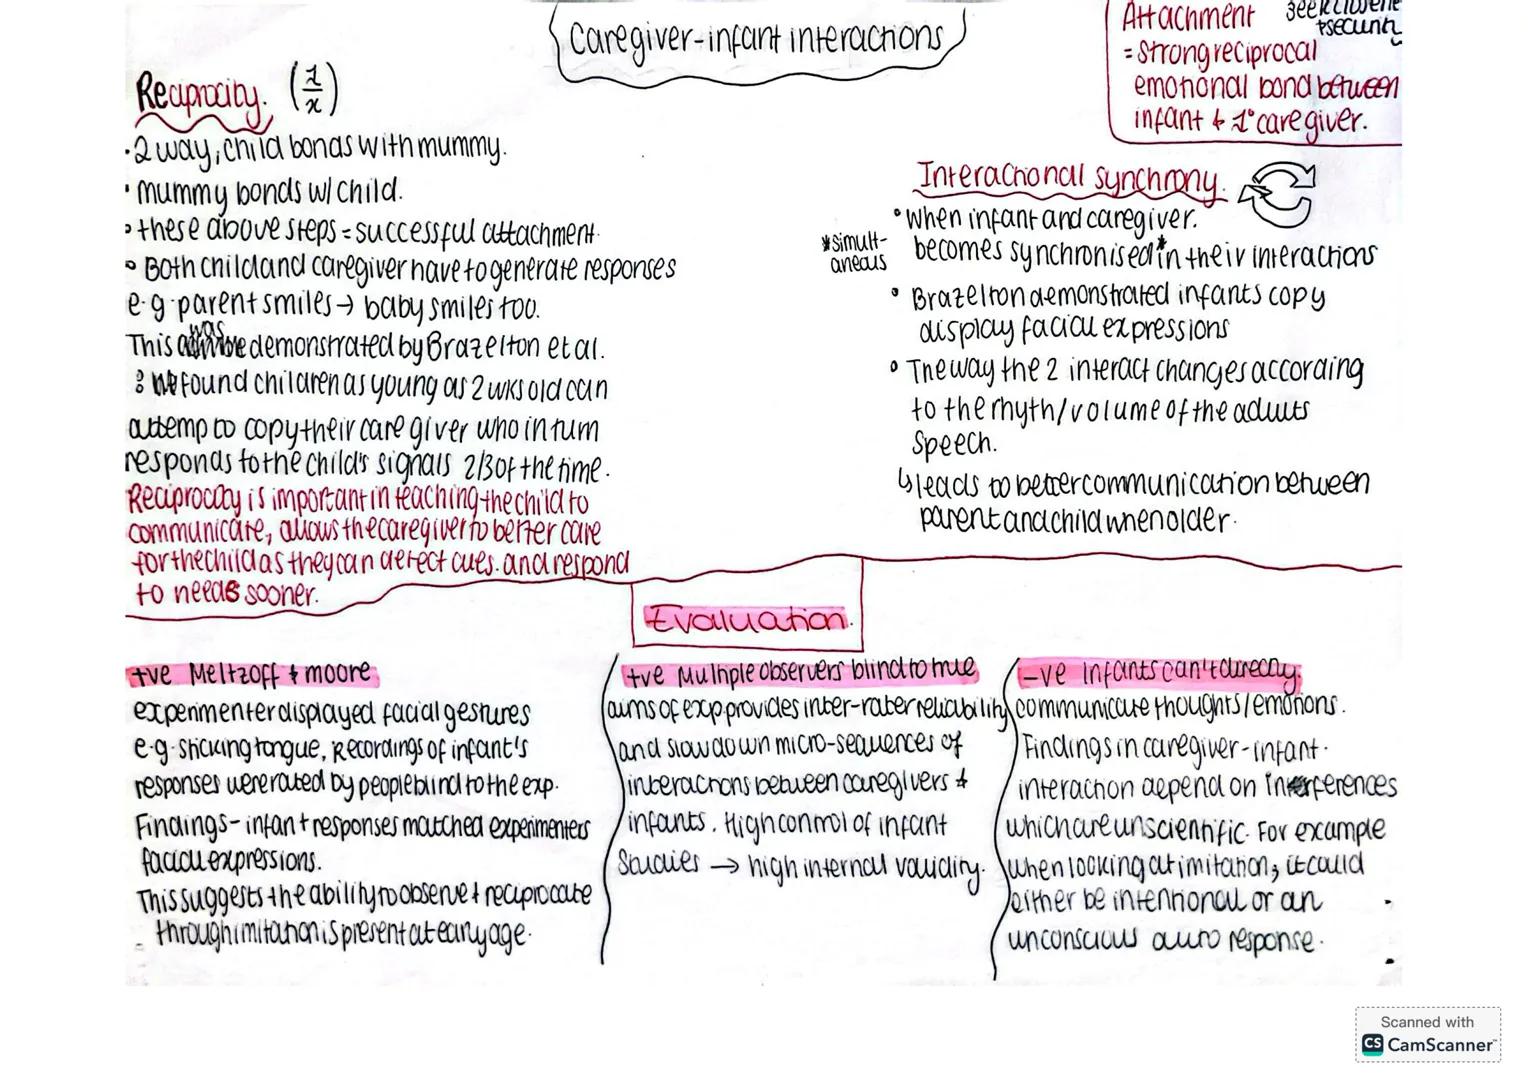 Caregiver-infant interactions
Attachment seek closene
+security
= strong reciprocal
emotional bond between
infant & 1° caregiver.
Reciprocity. (1/x)
• 2 way, child bonds with mummy.
• mummy bonds w/ child.
• these above steps = successful attachment.
• Both child and caregiver have to generate responses
e.g. parent smiles → baby smiles too.
This was demonstrated by Brazelton et al.
: found children as young as 2 wks old can
attemp to copy their care giver who in turn
responds to the child's signals 2/3 of the time.
Reciprocity is important in teaching the child to
communicate, allows the caregiver to better care
for the child as they can detect cues. and respond
to needs sooner.
Interactional synchrony.
• when infant and caregiver.
becomes synchronised* in their interactions
*simult-
aneous
• Brazelton demonstrated infants copy
display facial expressions
• The way the 2 interact changes according
to the rhyth/volume of the adults
speech.
↳ leads to better communication between
parent and child when older.
Evaluation.
+ve Meltzoff & moore
experimenter displayed facial gestures
e.g. sticking tongue, Recordings of infant's
responses were rated by people blind to the exp.
Findings - infant responses matched experimenters
facial expressions.
This suggests the ability to observe & reciprocate
through imitation is present at early age.
+ve Multiple observers blind to true
aims of exp provides inter-rater reliability
and slow down micro-sequences of
interactions between caregivers &
infants. High control of infant
Studies → high internal validity.
-ve Infants can't directly
communicate thoughts/emotions.
Findings in caregiver-infant.
interaction depend on interferences
which are unscientific. For example
when looking at imitation, it could
either be intentional or an
unconscious auto response.
Scanned with
CS CamScanner